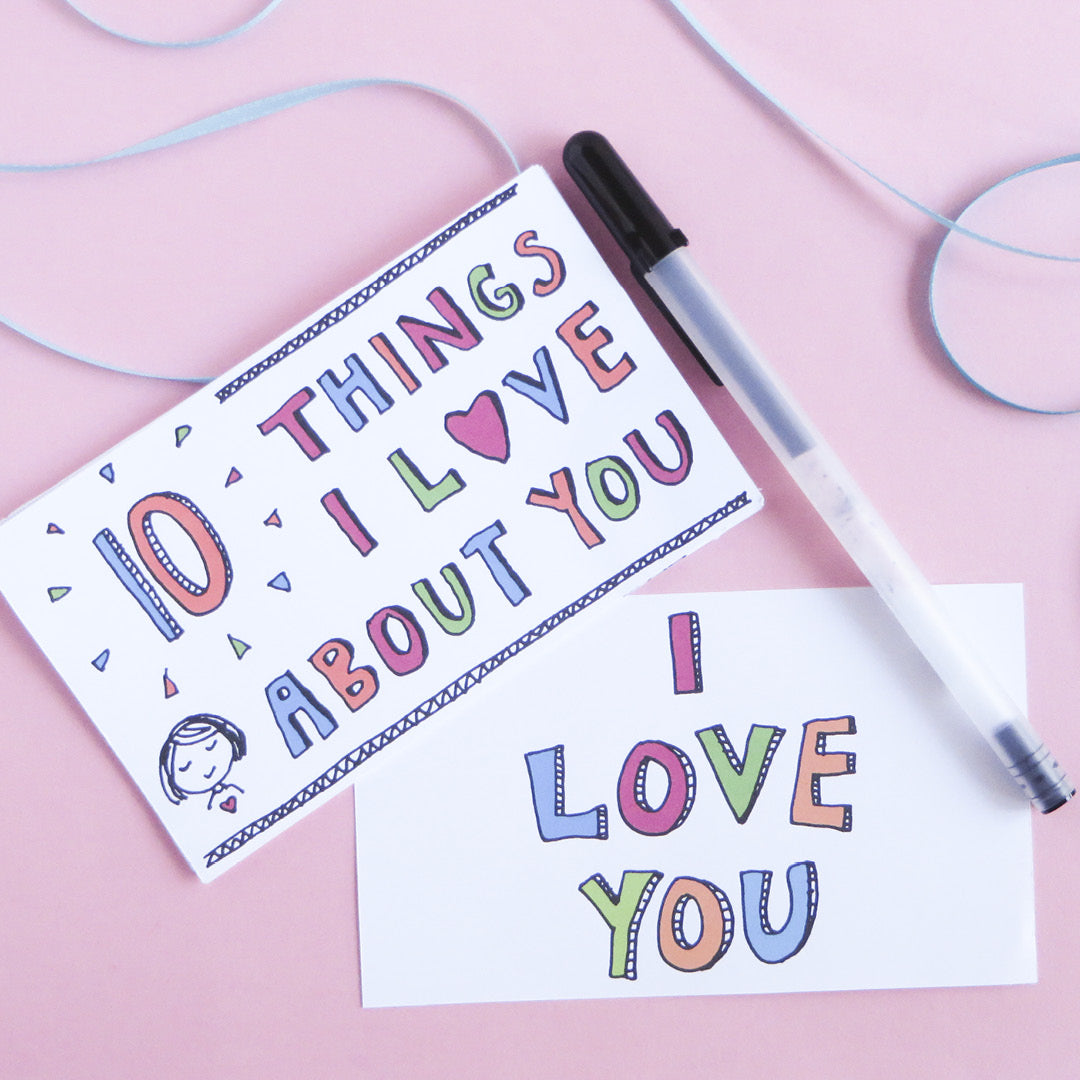 10
THINGS
I L♥VE
ABOUT YOU
I
LOVE
YOU